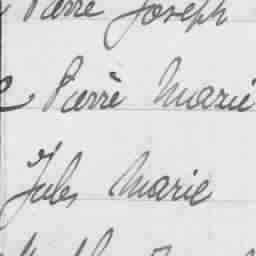 Pierre Joseph
Pierre Marie
Jules Marie